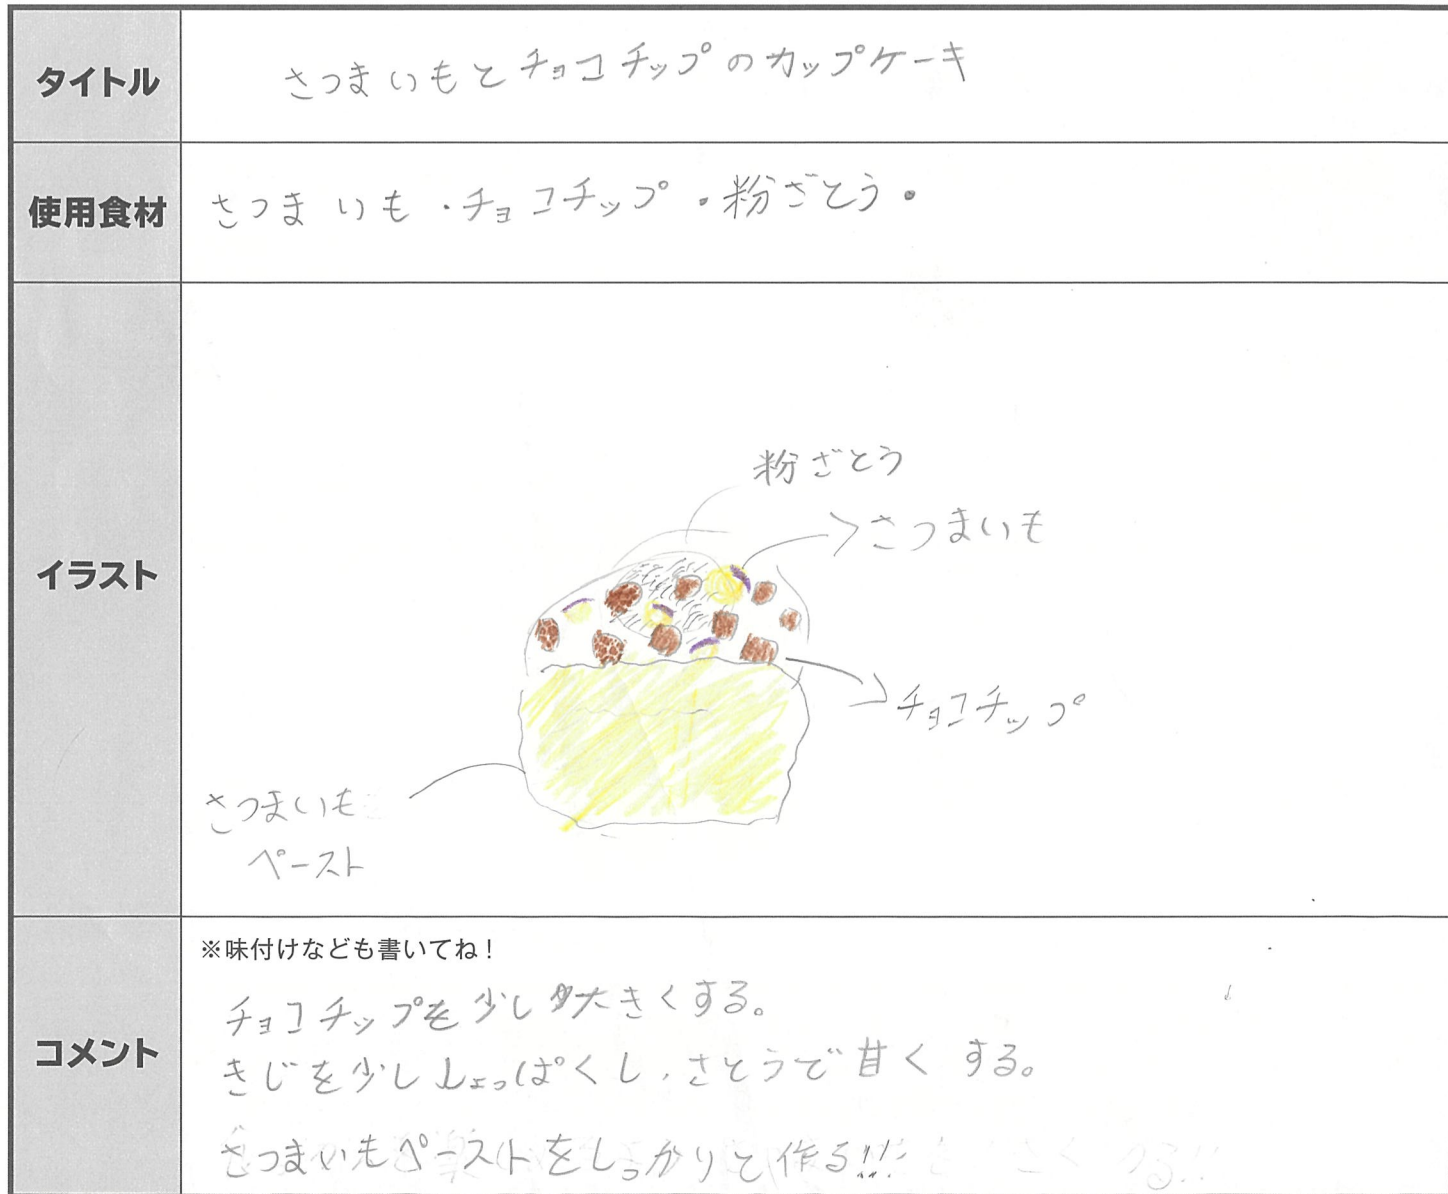 タイトル
さつまいもとチョコチップのカップケーキ
使用食材
さつまいも・チョコチップ・粉ざとう・
イラスト
粉ざとう
さつまいも
チョコチップ
さつまいも
ペースト
コメント
※味付けなども書いてね！
チョコチップを少し大きくする。
きじを少ししょっぱくし、さとうで甘くする。
さつまいもペーストをしっかりと作る!!